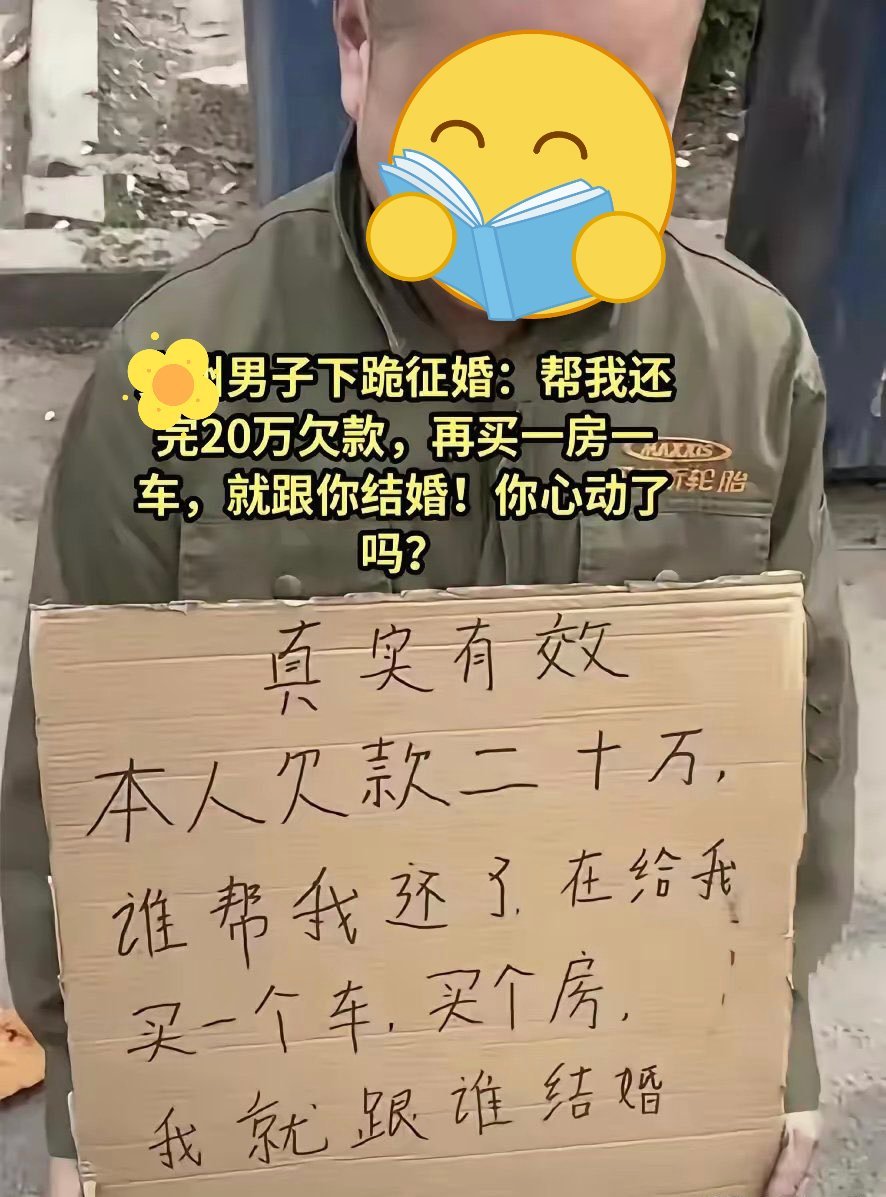 男子下跪征婚：帮我还
完20万欠款，再买一房一
车，就跟你结婚！你心动了
吗？
MAXXIS
轮胎
真实有效
本人欠款二十万，
谁帮我还了，在给我
买一个车，买个房，
我就跟谁结婚